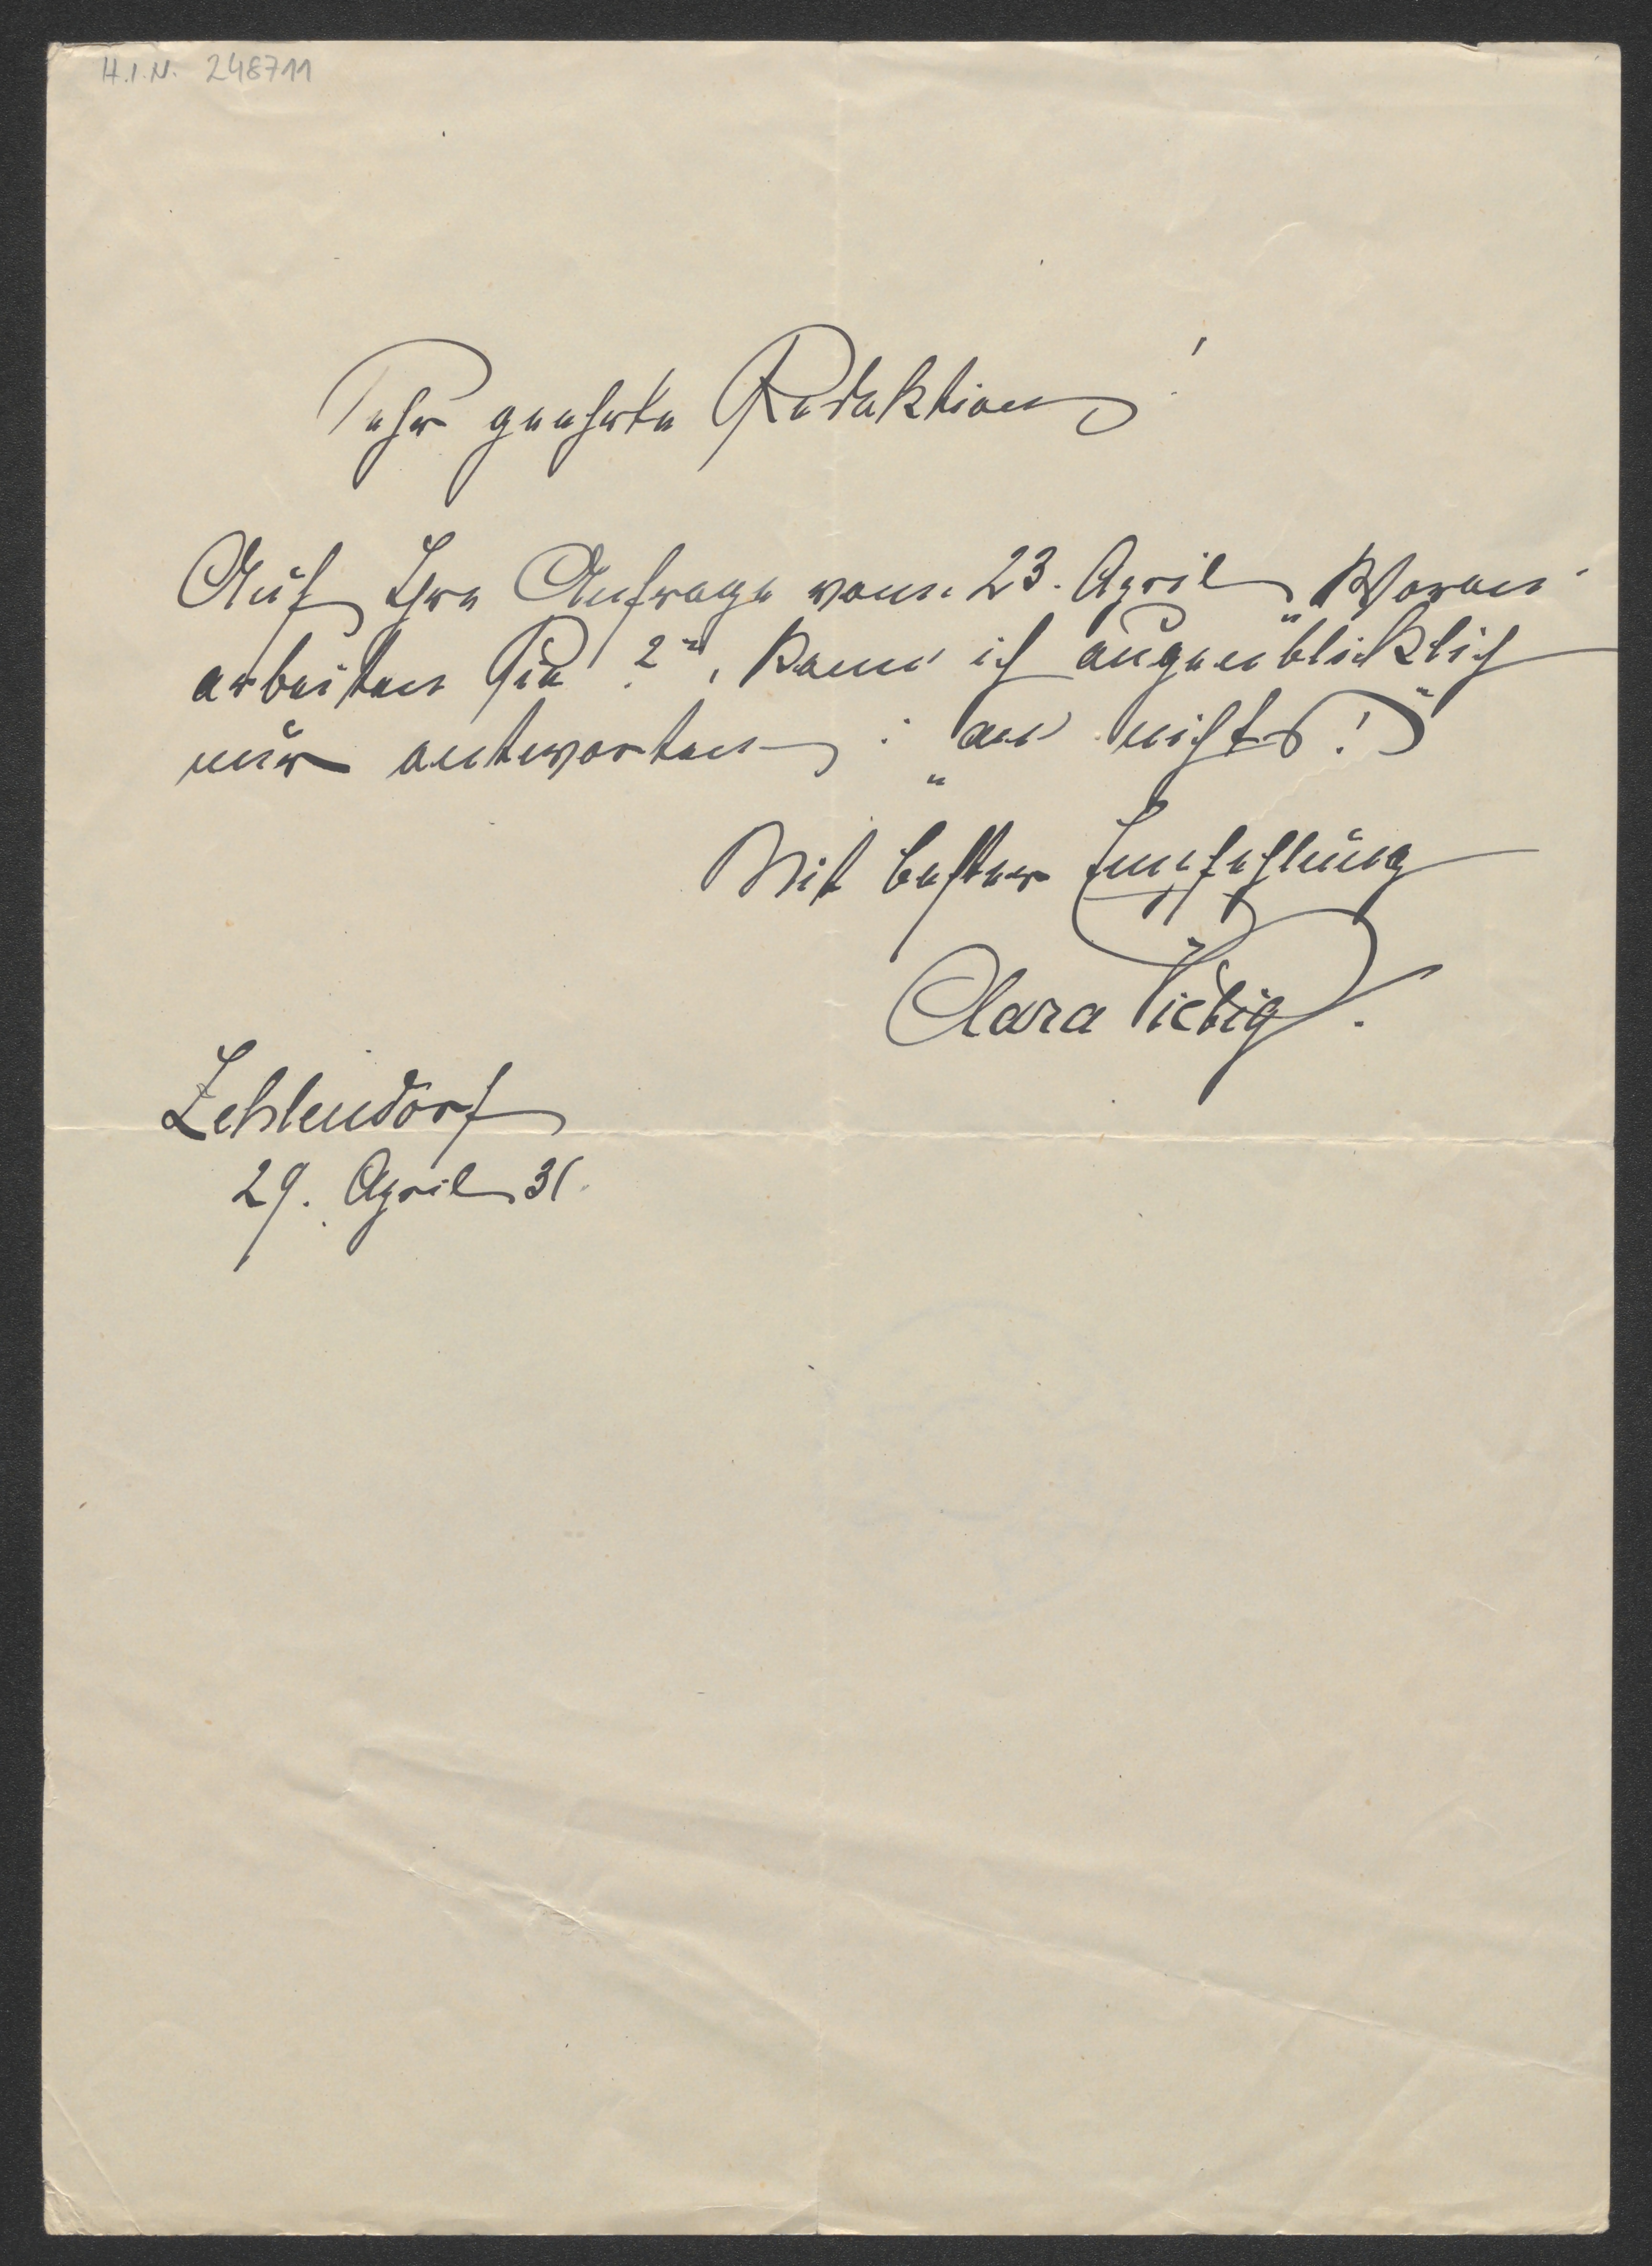 H.I.N. 248711
Sehr geehrte Redaktion!
Auf Ihre Anfrage vom 23. April „Woran
arbeiten Sie?“, kann ich augenblicklich
nur antworten: „an nichts!“
Mit bester Empfehlung
Clara Viebig.
Zehlendorf
29. April 31.